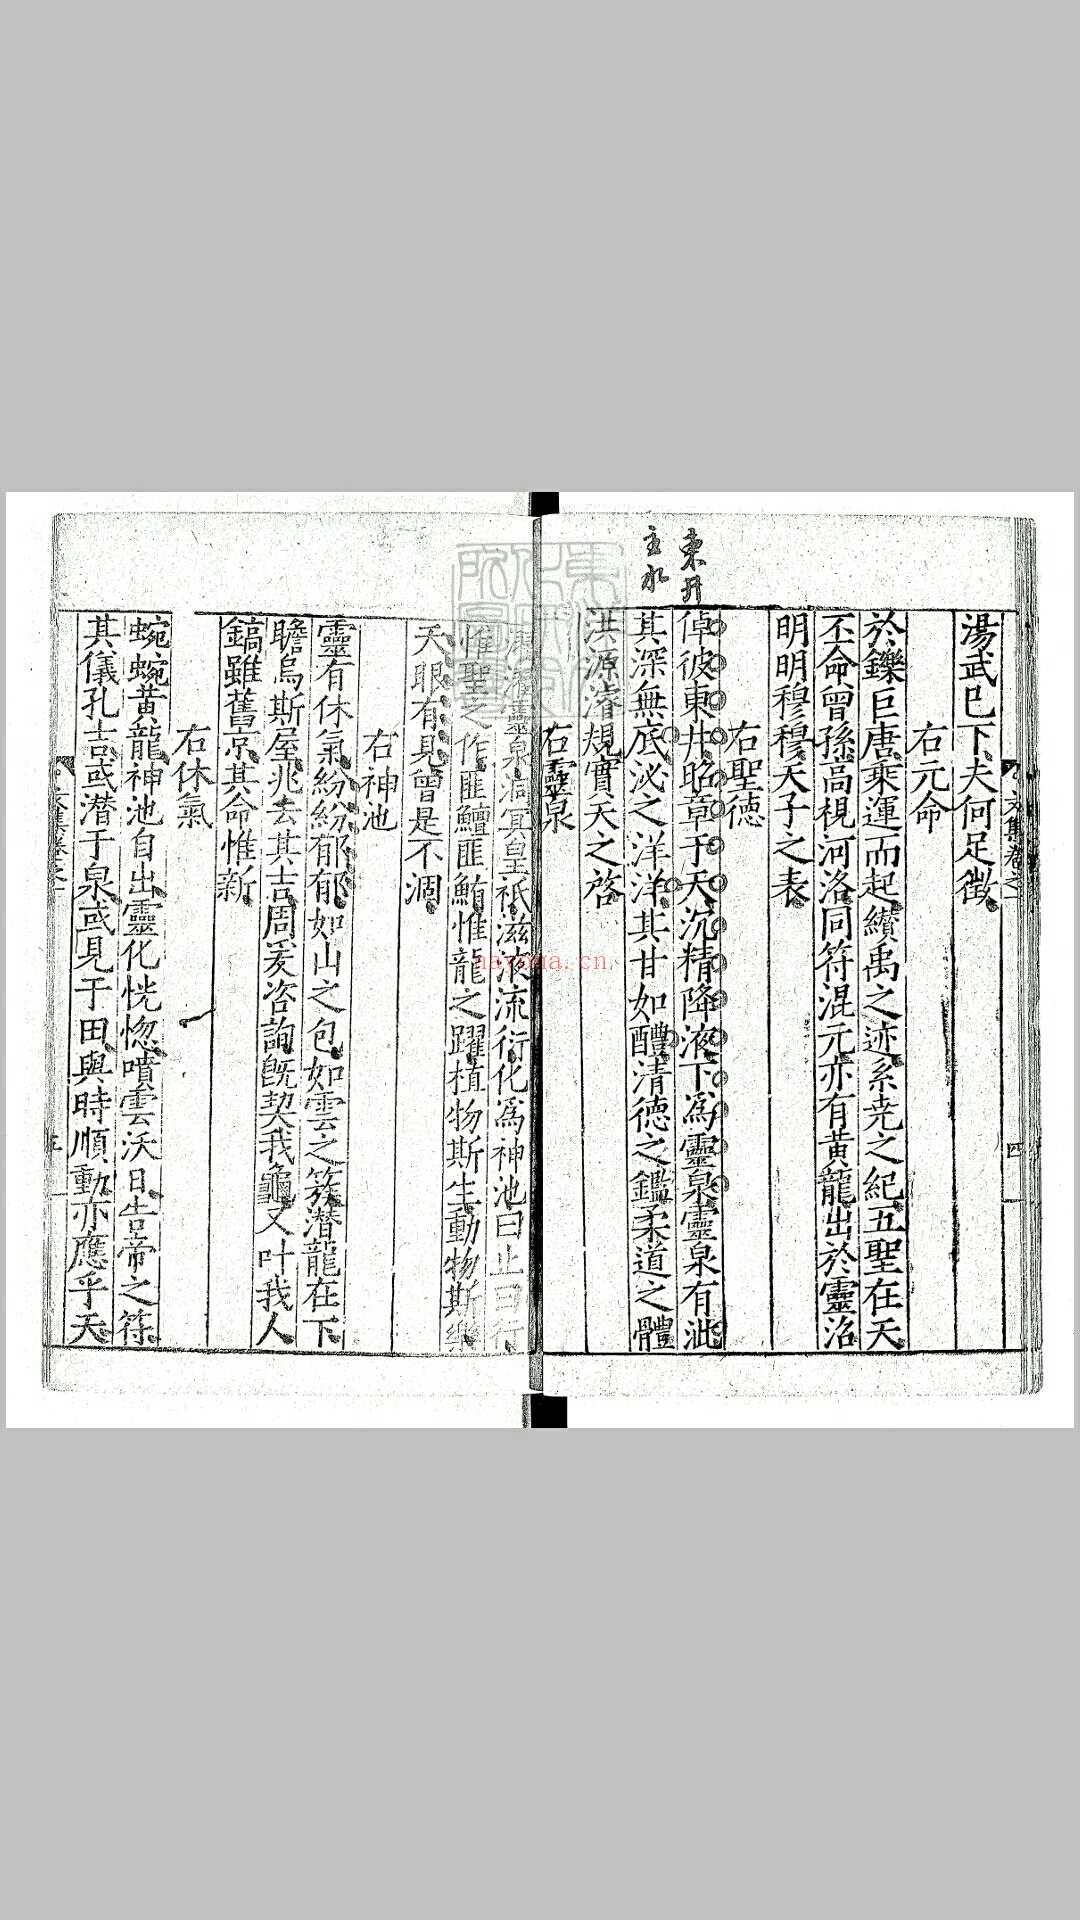 湯武已下夫何足徵
右元命
於鑠巨唐乘運而起纘禹之迹系尭之紀五聖在天
丕命曾孫高視河洛同符混元亦有黃龍出於靈洛
明明穆穆天子之表
右聖德
倬彼東井昭章于天沉精降液下爲靈泉靈泉有泚
其深無底泌之洋洋其甘如醴清德之鑑柔道之體
洪源濬規實天之啓
右靈泉
東井
主水
文集卷之一
四
靈泉 冥皇祇滋液流衍化爲神池曰止曰行
惟聖之作匪鱣匪鮪惟龍之躍植物斯生動物斯樂
天眼有見曾是不凋
右神池
靈有休氣紛紛郁郁如山之包如雲之簇潛龍在下
瞻烏斯屋兆去其吉周爰咨詢旣契我龜又叶我人
鎬雖舊京其命惟新
右休氣
蜿蜿黃龍神池自出靈化恍惚噴雲沃日告帝之符
其儀孔吉或潛于泉或見于田與時順動亦應乎天
文集卷之一
五
nayona.cn